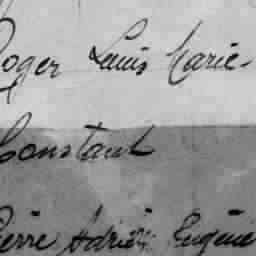 Roger Louis Marie-
Constant
Pierre Adrien Eugène